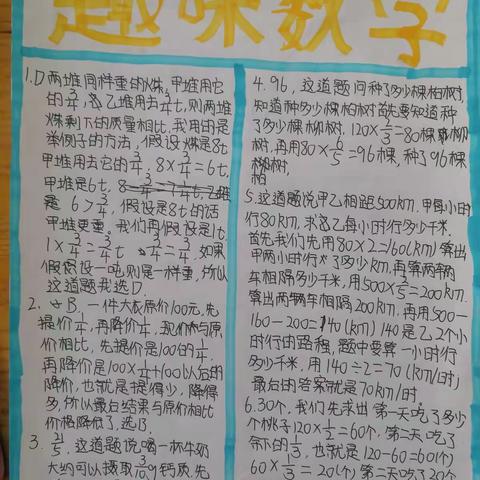 趣味数学
1.D 两堆同样重的煤,甲堆用它
的3/4,乙堆用去3/4t,则两堆
煤剩下的质量相比,我用的是
举例子的方法,假设煤是8t
甲堆用去它的3/4,8×3/4=6t,
甲堆是6t,
6>3/4,假设是8t的话
甲堆更重。我们再假设是1t.
1×3/4=3/4t 3/4=3/4.如果
假设一吨则是一样重,所以
这道题我选D.
2. B.一件大衣原价100元,先
提价1/4,再降价1/4,现价与原
价相比,先提价是100的1/4,
再降价是100×1/4+100以后的
降价,也就是提得少,降得
多,所以最后结果与原价相比
价格降低了,选B.
3. 21/5,这道题说喝一杯牛奶
大约可以摄取3/10g钙质,先
4.96,这道题问种了多少棵柏树,
知道种多少棵柏树首先要知道种
了多少棵柳树,120×2/3=80棵柳
树,再用80×6/5=96棵,种了96棵
柏树,
5.这道题说甲乙相距500km.甲每小时
行80km,求乙每小时行多少千米,
首先我们先用80×2=160(km)算出
甲两小时行了多少km,再算两辆
车相隔多少千米,用500×2/5=200km.
算出两辆车相隔200km,再用500-
160-200=140(km)140是乙2个小
时行的路程,题中要算一小时行
多少千米,用140÷2=70(km/时)
最后的答案就是70km/时
6.30个,我们先求出第一天吃了多少
个桃子120×1/2=60个,第二天吃了
余下的1/3,也就是120-60=60(个)
60×1/3=20(个)第二天吃了20个